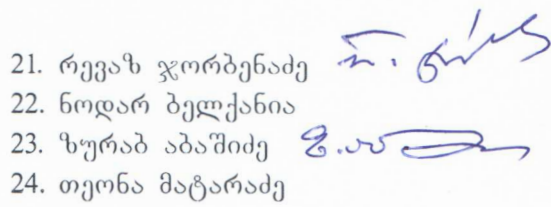 21. რევაზ ჯორბენაძე
22. ნოდარ ბელქანია
23. ზურაბ აბაშიძე
24. თეონა მატარაძე